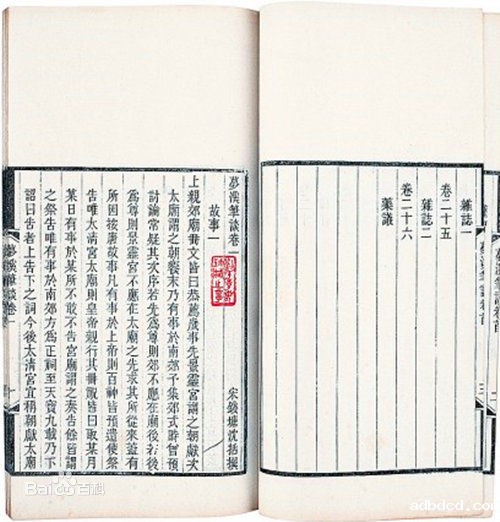 夢溪筆談卷首
三
雜誌一
卷二十五
雜誌二
卷二十六
藥議
夢溪筆談卷一
宋錢塘沈括撰
故事一
上親郊廟冊文皆曰恭薦歲事先景靈宮謂之朝獻次
太廟謂之朝饗末乃有事於南郊予集郊式時曾預
討論常疑其次序若先爲尊則郊不應在廟後若後
爲尊則景靈宮不應在太廟之先求其所從來蓋有
所因按唐故事凡有事於上帝則百神皆預遣使祭
告唯太清宮太廟則皇帝親行其冊祝皆曰取某月
某日有事於某所不敢不告宮廟謂之奏告餘皆謂
之祭告唯有事於南郊方爲正祠至天寶九載乃下
詔曰告者上告下之詞今後太清宮宜稱朝獻太廟
夢溪筆談卷一
Bai百科
adbdcd.com